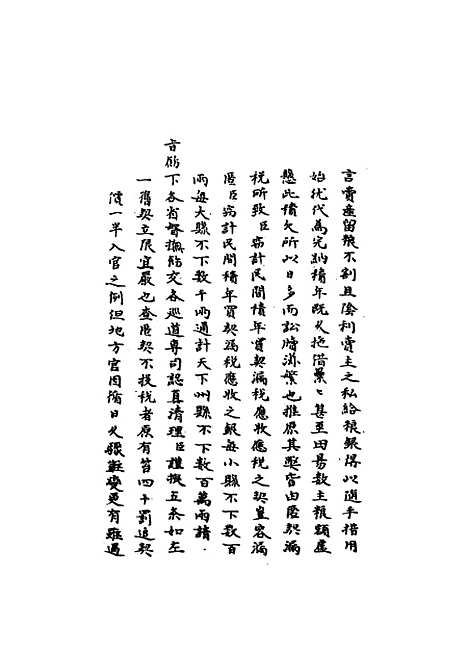 言賣產留粮不割且陰利賣主之私給粮銀得以隨手措用
始犹代為完納積年既久拖借纍纍甚至田易数主粮額虛
懸此積欠所以日多而訟牘滋繁也推原其弊皆由匿契漏
税所致臣窃計民間積年買契漏税應收應税之契豈容漏
匿臣窃計民間積年買契漏税應收之銀每小縣不下数百
兩每大縣不下数千兩通計天下州縣不下数百萬兩請
旨飭下各省督撫飭交各巡道專司認真清理臣謹擬五条如左
一舊契立限宜嚴也查匿契不投税者原有笞四十罰追契
價一半入官之例但地方官因循日久驟難變更有雖過